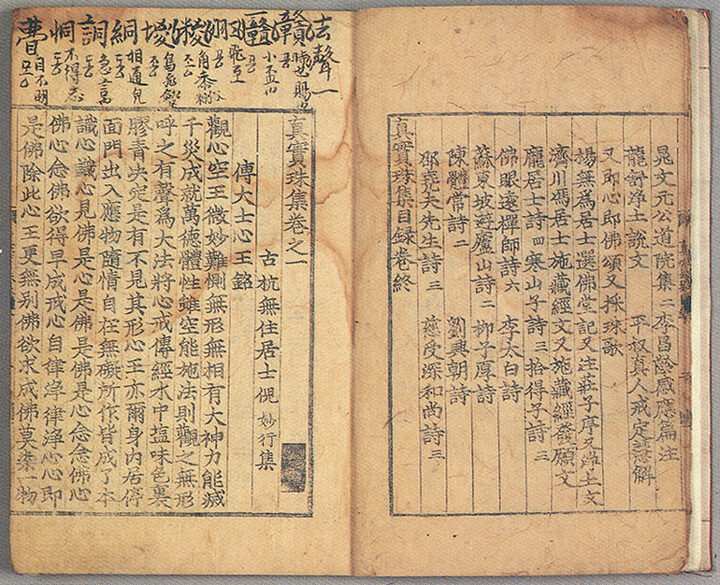 晁文元公道院集二 李昌齡感應篇注
龍舒淨土說文 平叔真人戒定慧解
又即心即佛頌又採珠歌
楊無為居士選佛堂記又注莊子序又淨土文
濟川馮居士施藏經文又施藏經發願文
龐居士詩四 寒山子詩三 拾得子詩三
佛眼遠禪師詩六 李太白詩
蘇東坡遊廬山詩二 柳子厚詩
陳體常詩二 劉興朝詩
邵堯夫先生詩三 慈受深和尚詩三
真實珠集目録卷終
法聲一
小盃
角黍
鳥飛
相通皃
急言
不得志
目不明
真實珠集卷之一
古杭無住居士俔 妙行集
傅大士心王銘
觀心空王微妙難惻無形無相有大神力能滅
千災成就萬德體性雖空能施法則觀之無形
呼之有聲爲大法將心戒傳經水中塩味色裏
膠青决定是有不見其形心王亦爾身內居停
面門出入應物隨情自在無礙所作皆成了本
識心識心見佛是心是佛是佛是心念念佛心
佛心念佛欲得早成戒心自律淨律淨心心即
是佛除此心王更無別佛欲求成佛莫染一物